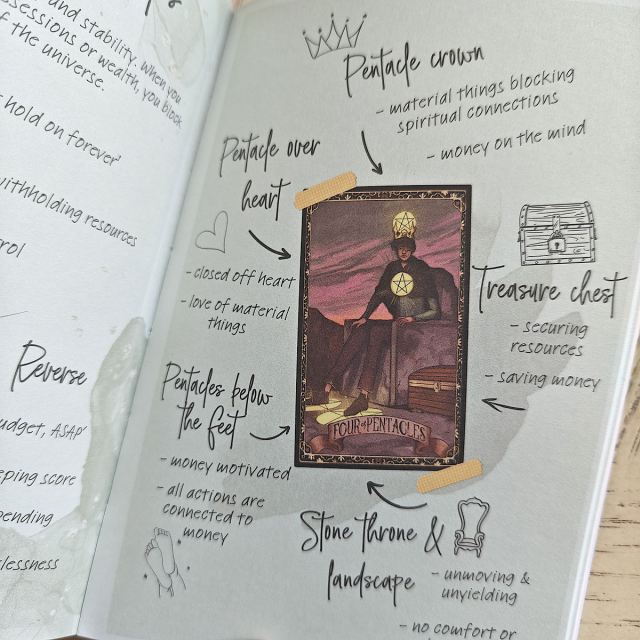 and stability. When you
possessions or wealth, you block
f the universe.
hold on forever'
withholding resources
rol
Reverse
udget, ASAP'
eping score
pending
lessness
Pentacle crown
- material things blocking
spiritual connections
- money on the mind
Pentacle over
heart
- closed off heart
- love of material
things
Treasure chest
- securing
resources
- saving money
Pentacles below
the feet
- money motivated
- all actions are
connected to
money
FOUR of PENTACLES
Stone throne &
landscape
- unmoving &
unyielding
- no comfort or